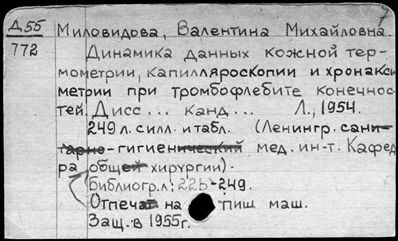 Д.55 Миловидова, Валентина Михайловна.
772 Динамика данных кожной тер-
мометрии, капилляроскопии и хронакси
метрии при тромбофлебите конечнос-
тей. Дисс... канд... Л., 1954.
249 л. с илл. и табл. (Ленингр. сани-
тарно-гигиенический мед. ин-т. Кафед
ра общей хирургии).
Библиогр. л. 226-249.
Отпечат на пиш маш.
Защ. в 1955г.